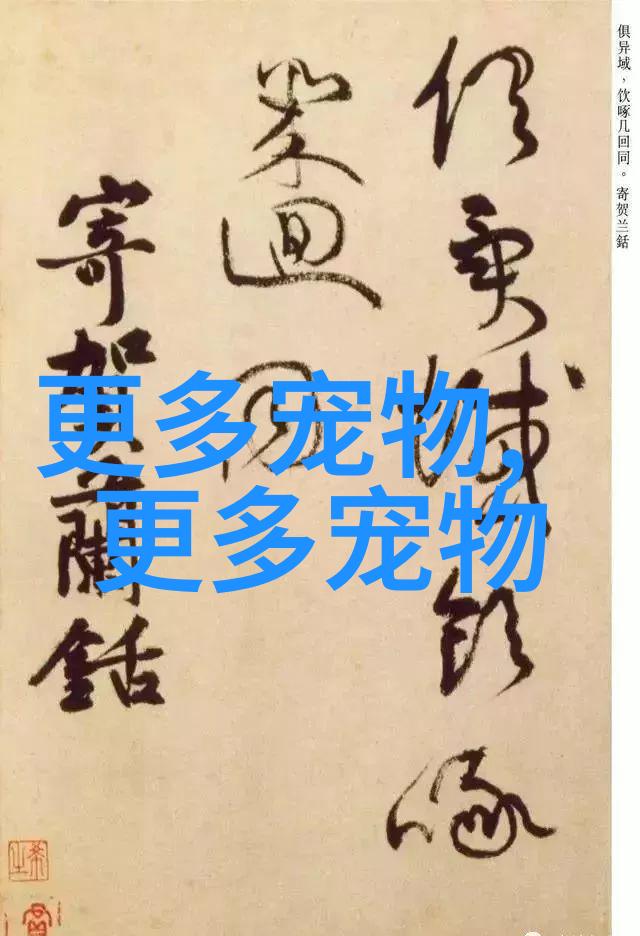 俱异域，饮啄几回同。寄贺兰銛
俱異域飲啄
幾迴同
寄賀蘭銛
更多宠物,
更多宠物